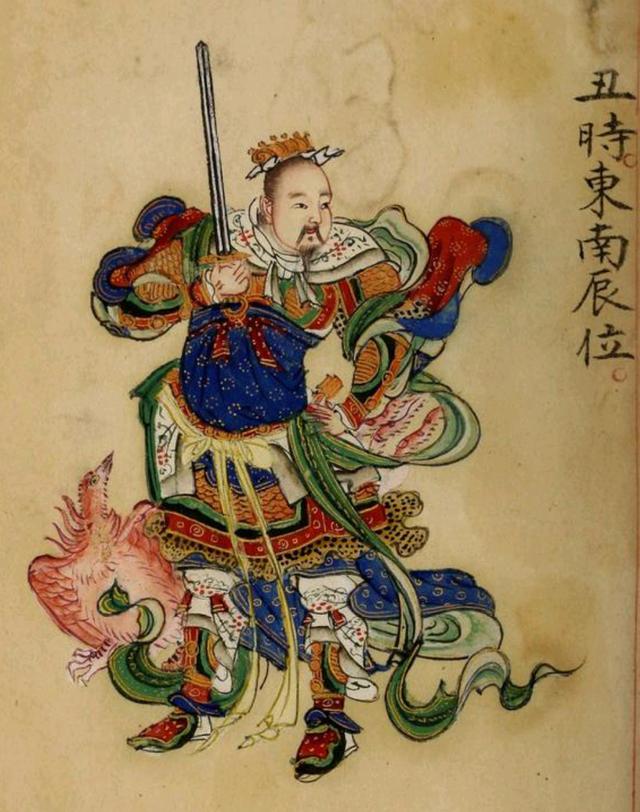 丑時東南辰位